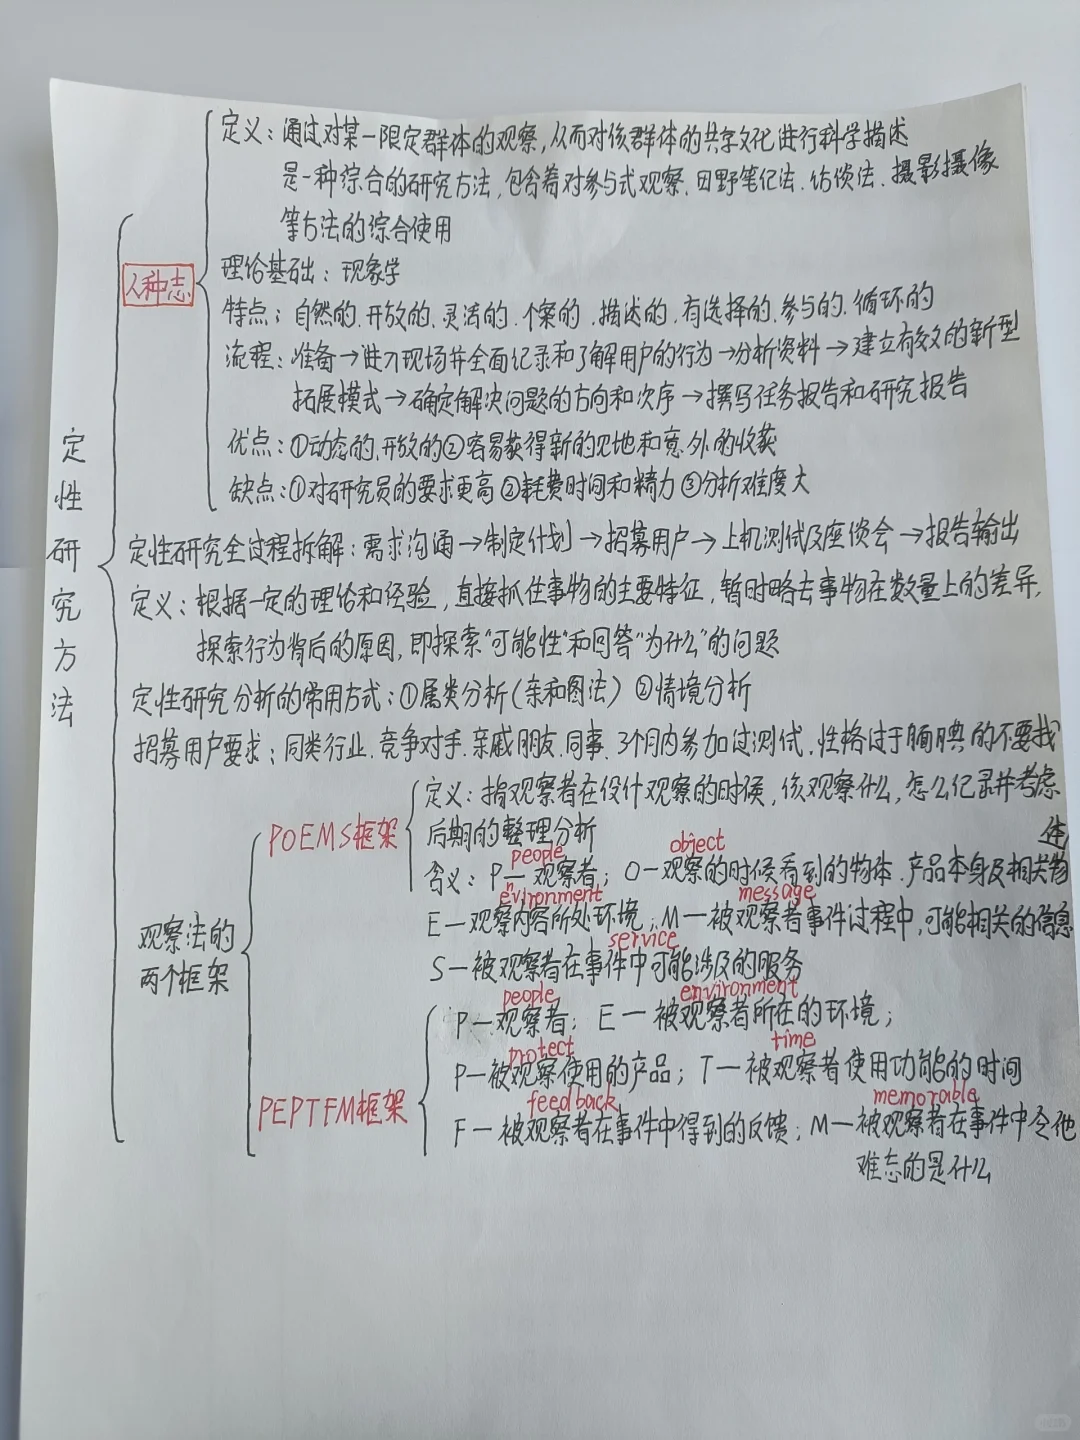 定性研究方法
人种志
定义：通过对某一限定群体的观察，从而对该群体的共享文化进行科学描述
是一种综合的研究方法，包含着对参与式观察、田野笔记法、访谈法、摄影摄像
等方法的综合使用
理论基础：现象学
特点：自然的、开放的、灵活的、个案的、描述的、有选择的、参与的、循环的
流程：准备→进入现场并全面记录和了解用户的行为→分析资料→建立有效的新型
拓展模式→确定解决问题的方向和次序→撰写任务报告和研究报告
优点：①动态的、开放的②容易获得新的见地和意外的收获
缺点：①对研究员的要求更高②耗费时间和精力③分析难度大
定性研究全过程拆解：需求沟通→制定计划→招募用户→上机测试及座谈会→报告输出
定义：根据一定的理论和经验，直接抓住事物的主要特征，暂时略去事物在数量上的差异，
探索行为背后的原因，即探索“可能性”和回答“为什么”的问题
定性研究分析的常用方式：①属类分析（亲和图法）②情境分析
招募用户要求：同类行业、竞争对手、亲戚朋友、同事、3个月内参加过测试、性格过于腼腆的不要找
观察法的
两个框架
POEMS框架
定义：指观察者在设计观察的时候，该观察什么，怎么记录并考虑
后期的整理分析
people object
含义：P—观察者；O—观察的时候看到的物体、产品本身及相关物体
environment message
E—观察内容所处环境；M—被观察者事件过程中，可能相关的信息
service
S—被观察者在事件中可能涉及的服务
PEPTFM框架
people environment
P—观察者；E—被观察者所在的环境；
protect time
P—被观察使用的产品；T—被观察者使用功能的时间
feedback memorable
F—被观察者在事件中得到的反馈；M—被观察者在事件中令他
难忘的是什么